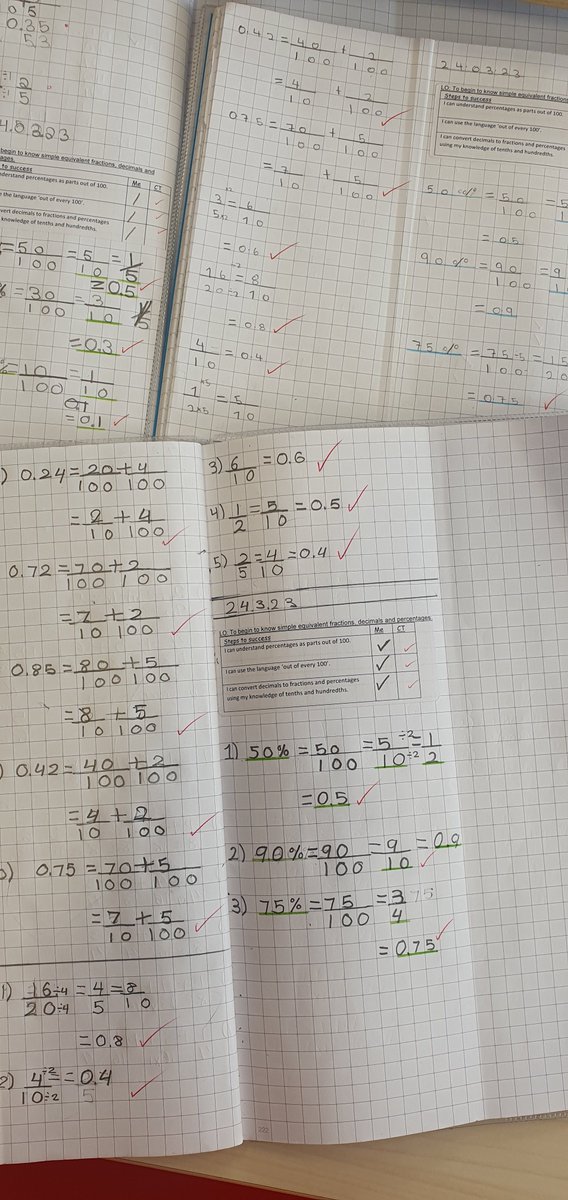 0.35
53
2
5
4.0323
begin to know simple equivalent fractions, decimals and
ages.
to success
Me CT
understand percentages as parts out of 100.
the language 'out of every 100'.
vert decimals to fractions and percentages
knowledge of tenths and hundredths.
= 50/100 = 5/10 = 1/5
= 0.5 ✓
% = 30/100 = 3/10
= 0.3 ✓
= 10/100 = 1/10
= 0.1 ✓
0.42 = 40/100 + 2/100
= 4/10 + 2/100 ✓
075 = 70/100 + 5/100
= 7/10 + 5/100 ✓
3/5×2 = 6/10
= 0.6 ✓
16÷2/20÷2 = 8/10
= 0.8 ✓
4/10 = 0.4 ✓
1×5/2×5 = 5/10
24.03.23
LO: To begin to know simple equivalent fractions
Steps to success
I can understand percentages as parts out of 100.
I can use the language 'out of every 100'.
I can convert decimals to fractions and percentages
using my knowledge of tenths and hundredths.
50 % = 50/100 = 5
= 0.5
90 % = 90/100 = 9
= 0.9
75 % = 75÷5/100 = 15/20
= 0.75 ✓
) 0.24 = 20/100 + 4/100
= 2/10 + 4/100 ✓
0.72 = 70/100 + 2/100
= 7/10 + 2/100 ✓
0.85 = 80/100 + 5/100
= 8/10 + 5/100 ✓
) 0.42 = 40/100 + 2/100
= 4/10 + 2/100 ✓
) 0.75 = 70/100 + 5/100
= 7/10 + 5/100 ✓
1) 16÷4/20÷4 = 4/5 = 8/10
= 0.8 ✓
2) 4÷2/10÷2 = = 0.4 ✓
5
3) 6/10 = 0.6 ✓
4) 1/2 = 5/10 = 0.5 ✓
5) 2/5 = 4/10 = 0.4 ✓
24.3.23
LO: To begin to know simple equivalent fractions, decimals and percentages.
Steps to success Me CT
I can understand percentages as parts out of 100. ✓ ✓
I can use the language 'out of every 100'. ✓ ✓
I can convert decimals to fractions and percentages ✓ ✓
using my knowledge of tenths and hundredths.
1) 50% = 50/100 = 5÷2/10÷2 = 1/2
= 0.5 ✓
2) 90% = 90/100 = 9/10 = 0.9 ✓
3) 75% = 75/100 = 3/4
= 0.75 ✓
222